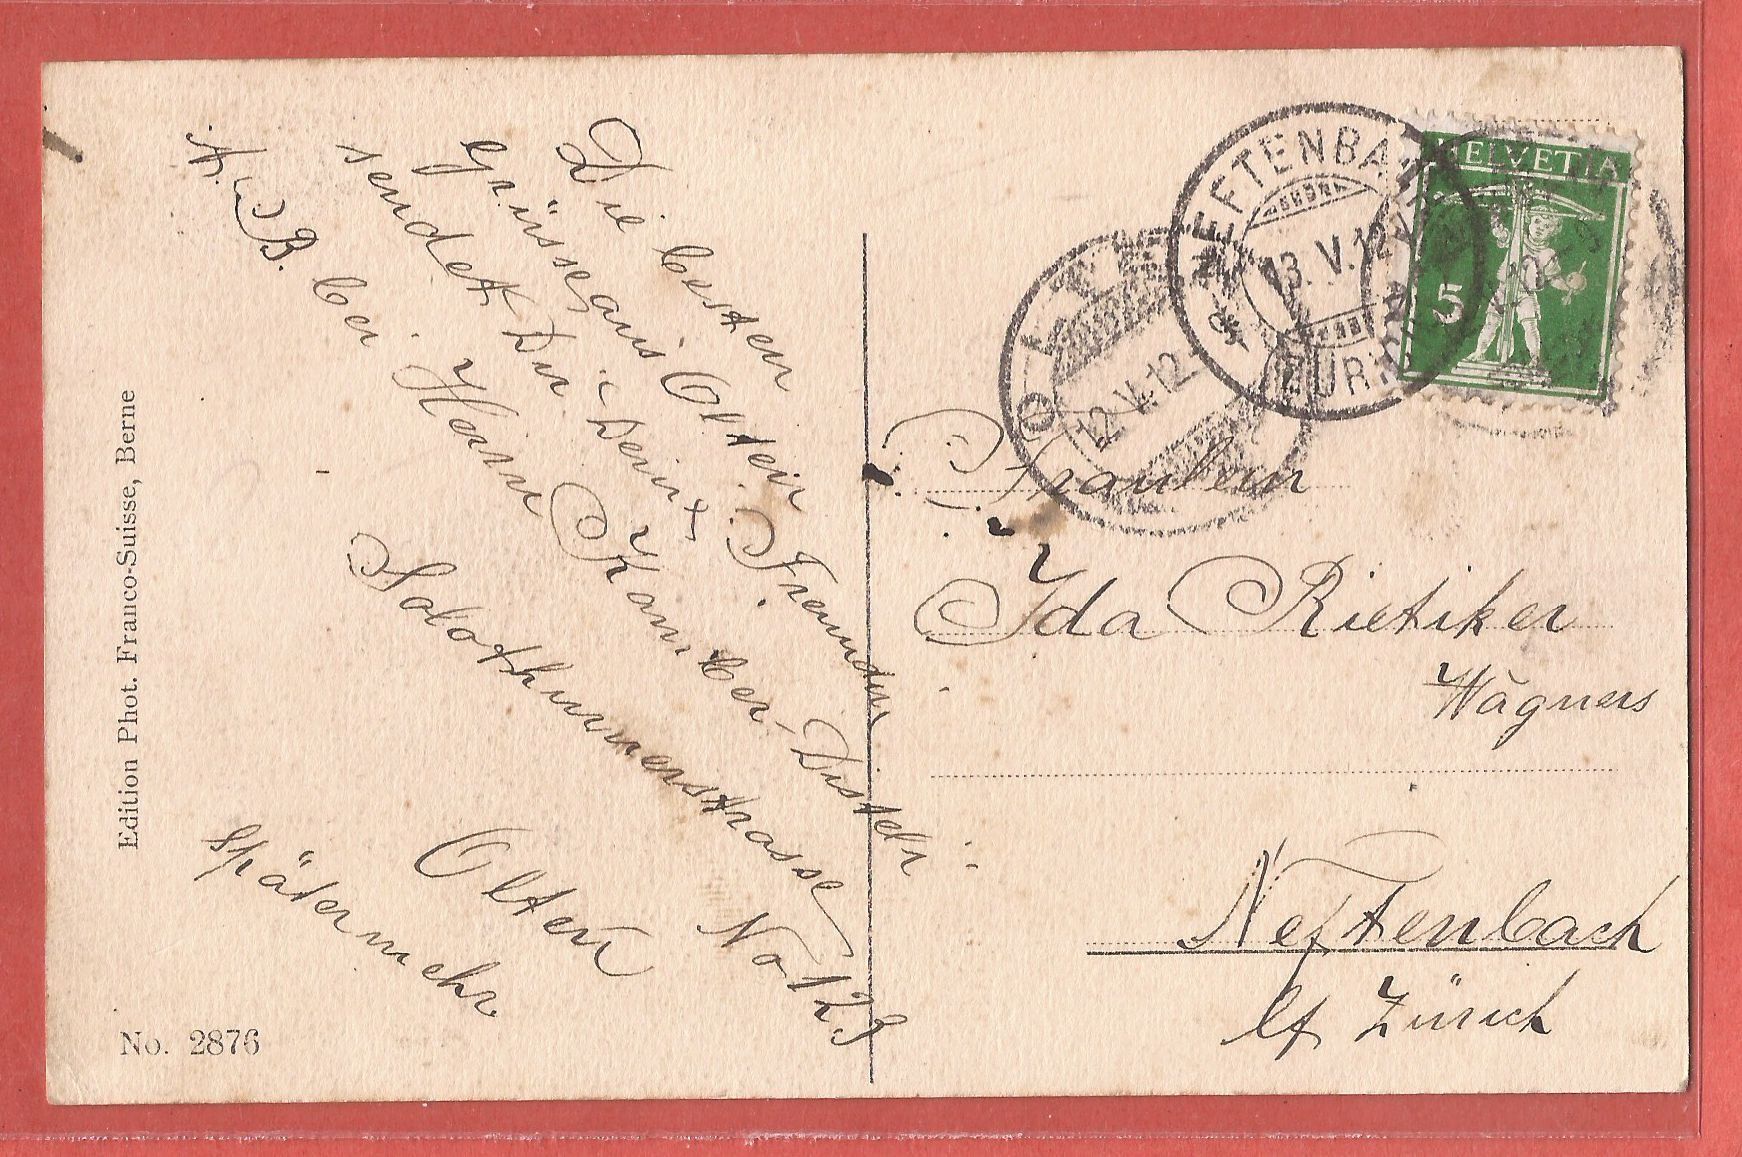 Die besten
Grüsse aus Olten
sendet Dir Deine Freundin
A. B. bei Herrn Kamber-Disteli
Solothurnerstrasse No 123
Olten
Später mehr
Edition Phot. Franco-Suisse, Berne
No. 2876
OLTEN
12.V.12
NEFTENBACH
13.V.12
(ZÜRICH)
HELVETIA
5
Fräulein
Ida Rietiker
Wagners
Neftenbach
Zürich